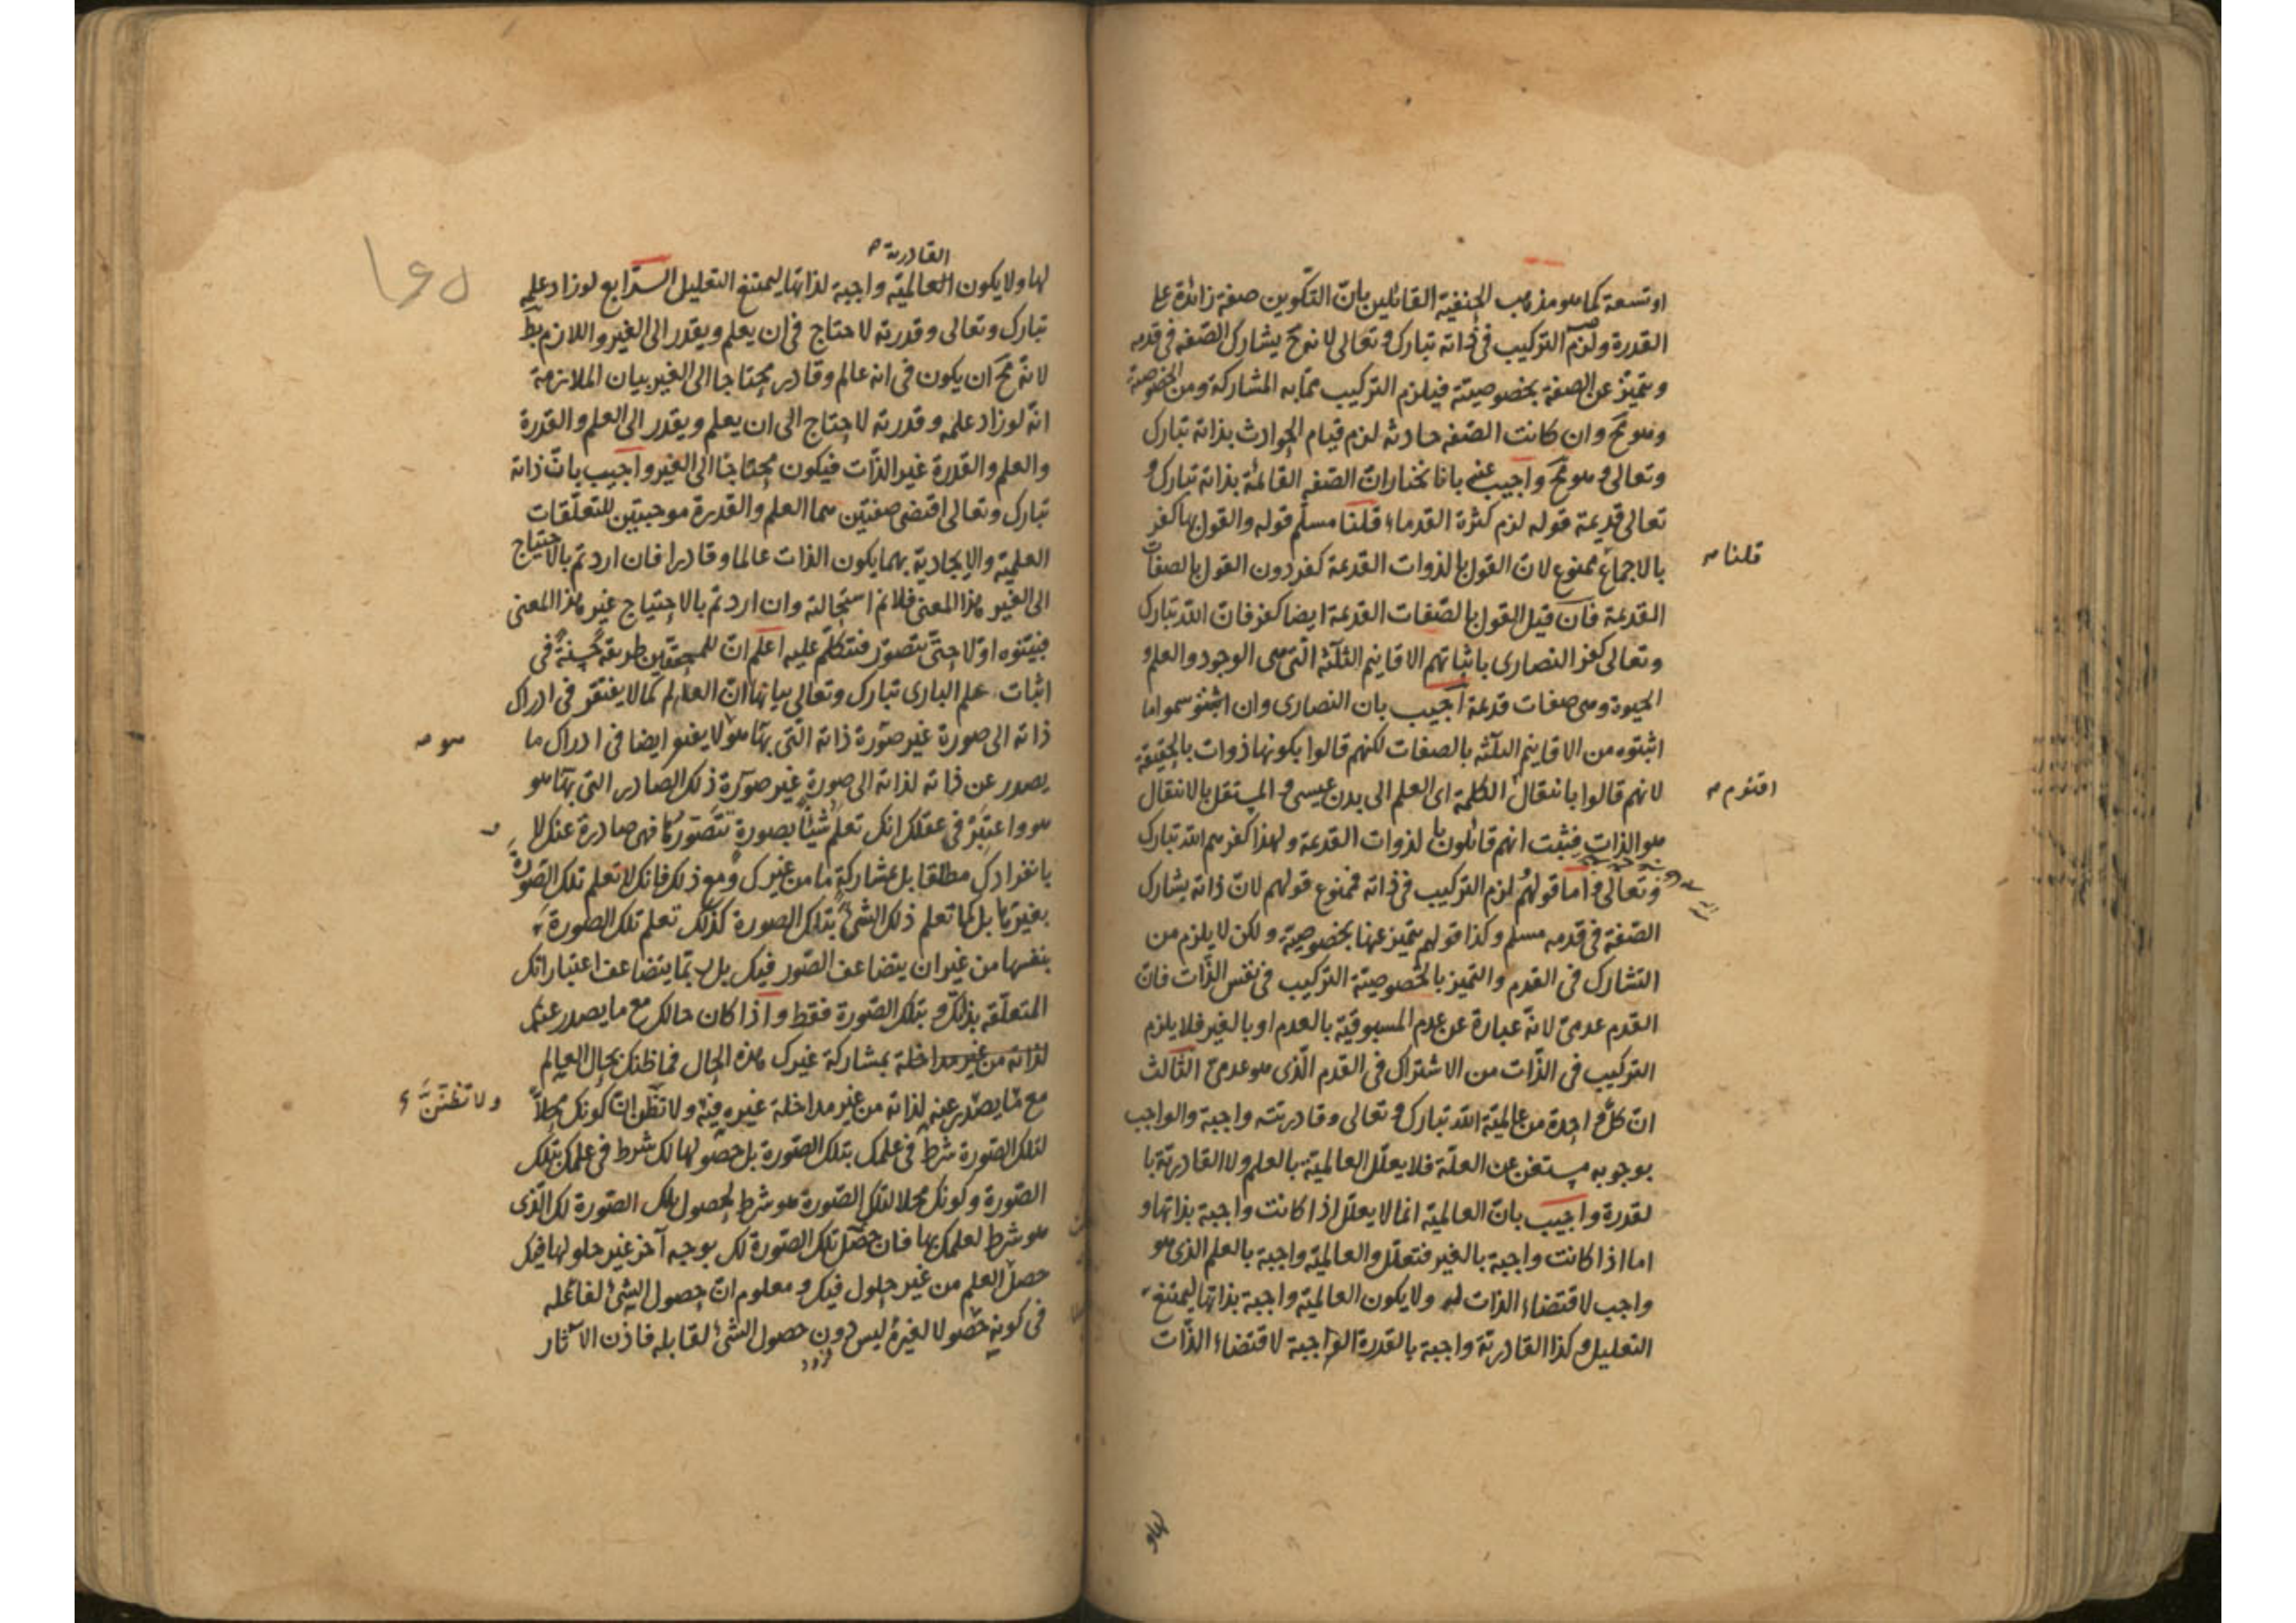 او تسعة كما هو مذهب الحنفية القائلين بانّ التكوين صفة زائدة على
القدرة ولزم التركيب فى ذاته تبارك وتعالى لانه ح يشارك الصّفة فى قدمه
ويتميّز عن الصفة بخصوصيته فيلزم التركيب ممّا به المشاركة ومن الخصوصية
وهو مح وان كانت الصّفة حادثة لزم قيام الحوادث بذاته تبارك
وتعالى وهو مح واجيب عنه بانا نختار ان الصّفة القائمة بذاته تبارك و
تعالى قديمة قوله لزم كثرة القدماء قلنا مسلّم قوله والقول بها كفر
بالاجماع ممنوع لانّ القول بالذوات القديمة كفر دون القول بالصفات
قلنا
القديمة فان قيل القول بالصّفات القديمة ايضا كفر فانّ الله تبارك
وتعالى كفر النصارى باثباتهم الاقانيم الثلثة الّتى هى الوجود والعلم و
الحيوة وهى صفات قديمة اجيب بان النصارى وان سموا ما
اثبتوه من الاقانيم الثلثة بالصفات لكنهم قالوا بكونها ذوات بالحقيقة
لانهم قالوا بانتقال الكلمة اى العلم الى بدن عيسى و المستقل بالانتقال
اقنوم
هو الذات فثبت انهم قائلون بالذوات القديمة ولهذا كفرهم الله تبارك
وتعالى و اما قولهم لزم التركيب فى ذاته فممنوع قولهم لانّ ذاته يشارك
الصّفة فى قدمه مسلم وكذا قولهم يتميز عنها بخصوصية ولكن لا يلزم من
التشارك فى القدم والتميز بالخصوصيّة التركيب فى نفس الذّات فانّ
القدم عدمىّ لانّه عبارة عن عدم المسبوقيّة بالعدم او بالغير فلا يلزم
التركيب فى الذّات من الاشتراك فى القدم الّذى هو عدمىّ الثالث
انّ كلّ واحدة من عالميّة الله تبارك و تعالى وقادريته واجبة والواجب
بوجوبه مستغن عن العلّة فلا يعلّل العالميّة بالعلم ولا القادريّة با
لقدرة واجيب بانّ العالميّة انما لا يعلّل اذا كانت واجبة بذاتها و
اما اذا كانت واجبة بالغير فتعلّل والعالميّة واجبة بالعلم الذى هو
واجب لاقتضاء الذات له ولا يكون العالميّة واجبة بذاتها ليمتنع
التعليل وكذا القادريّة واجبة بالقدرة الواجبة لاقتضاء الذّات
القادرية
لها ولا يكون العالميّة واجبة لذاتها ليمتنع التعليل الرّابع لو زاد علمه
تبارك وتعالى وقدرته لاحتاج فى ان يعلم ويقدر الى الغير واللازم بط
لانّه مح ان يكون فى انه عالم وقادر محتاجا الى الغير بيان الملازمة
انّه لو زاد علمه وقدرته لاحتاج الى ان يعلم ويقدر الى العلم والقدرة
والعلم والقدرة غير الذّات فيكون محتاجا الى الغير واجيب بانّ ذاته
تبارك وتعالى اقتضى صفتين هما العلم والقدرة موجبتين للتعلّقات
العلميّة والايجاديّة بهما يكون الذات عالما وقادرا فان اردتم بالاحتياج
الى الغير هذا المعنى فلانم استحالته وان اردتم بالاحتياج غير هذا المعنى
فبيّنوه اوّلا حتّى نتصوّر فنتكلّم عليه اعلم انّ للمحققين طريقة حسنة فى
اثبات علم البارى تبارك وتعالى بيانها انّ العالم كما لا يفتقر فى ادراك
ذاته الى صورة غير صورة ذاته الّتى بها هو لا يفتقر ايضا فى ادراك ما
هو
يصدر عن ذاته لذاته الى صورة غير صورة ذلك الصادر التى بها هو
هو واعتبر فى عقلك انك تعلم شيئا بصورة تتصوّرها فهى صادرة عنك لا
بانفرادك مطلقا بل بمشاركة ما من غيرك ومع ذلك فانك لا تعلم تلك الصورة
بغيرها بل كما تعلم ذلك الشئ بتلك الصورة كذلك تعلم تلك الصورة
بنفسها من غير ان يتضاعف الصّور فيك بل ربما يتضاعف اعتباراتك
المتعلّقة بذلك و بتلك الصّورة فقط واذا كان حالك مع ما يصدر عنك
لذاته من غير مداخلة بمشاركة غيرك هذه الحال فما ظنك بحال العالم
مع ما يصدر عنه لذاته من غير مداخلة غيره فيه ولا تظن ان كونك محلاّ
ولا تظننّ
لتلك الصّورة شرط فى علمك بتلك الصّورة بل حصولها لك شرط فى علمك بتلك
الصّورة وكونك محلا لتلك الصّورة هو شرط لحصول تلك الصّورة لك الّذى
هو شرط لعلمك بها فان حصل تلك الصّورة لك بوجه آخر غير حلولها فيك
حصل العلم من غير حلول فيك ومعلوم انّ حصول الشئ لفاعله
فى كونه حصولا لغيره ليس دون حصول الشئ لقابله فاذن الآثار